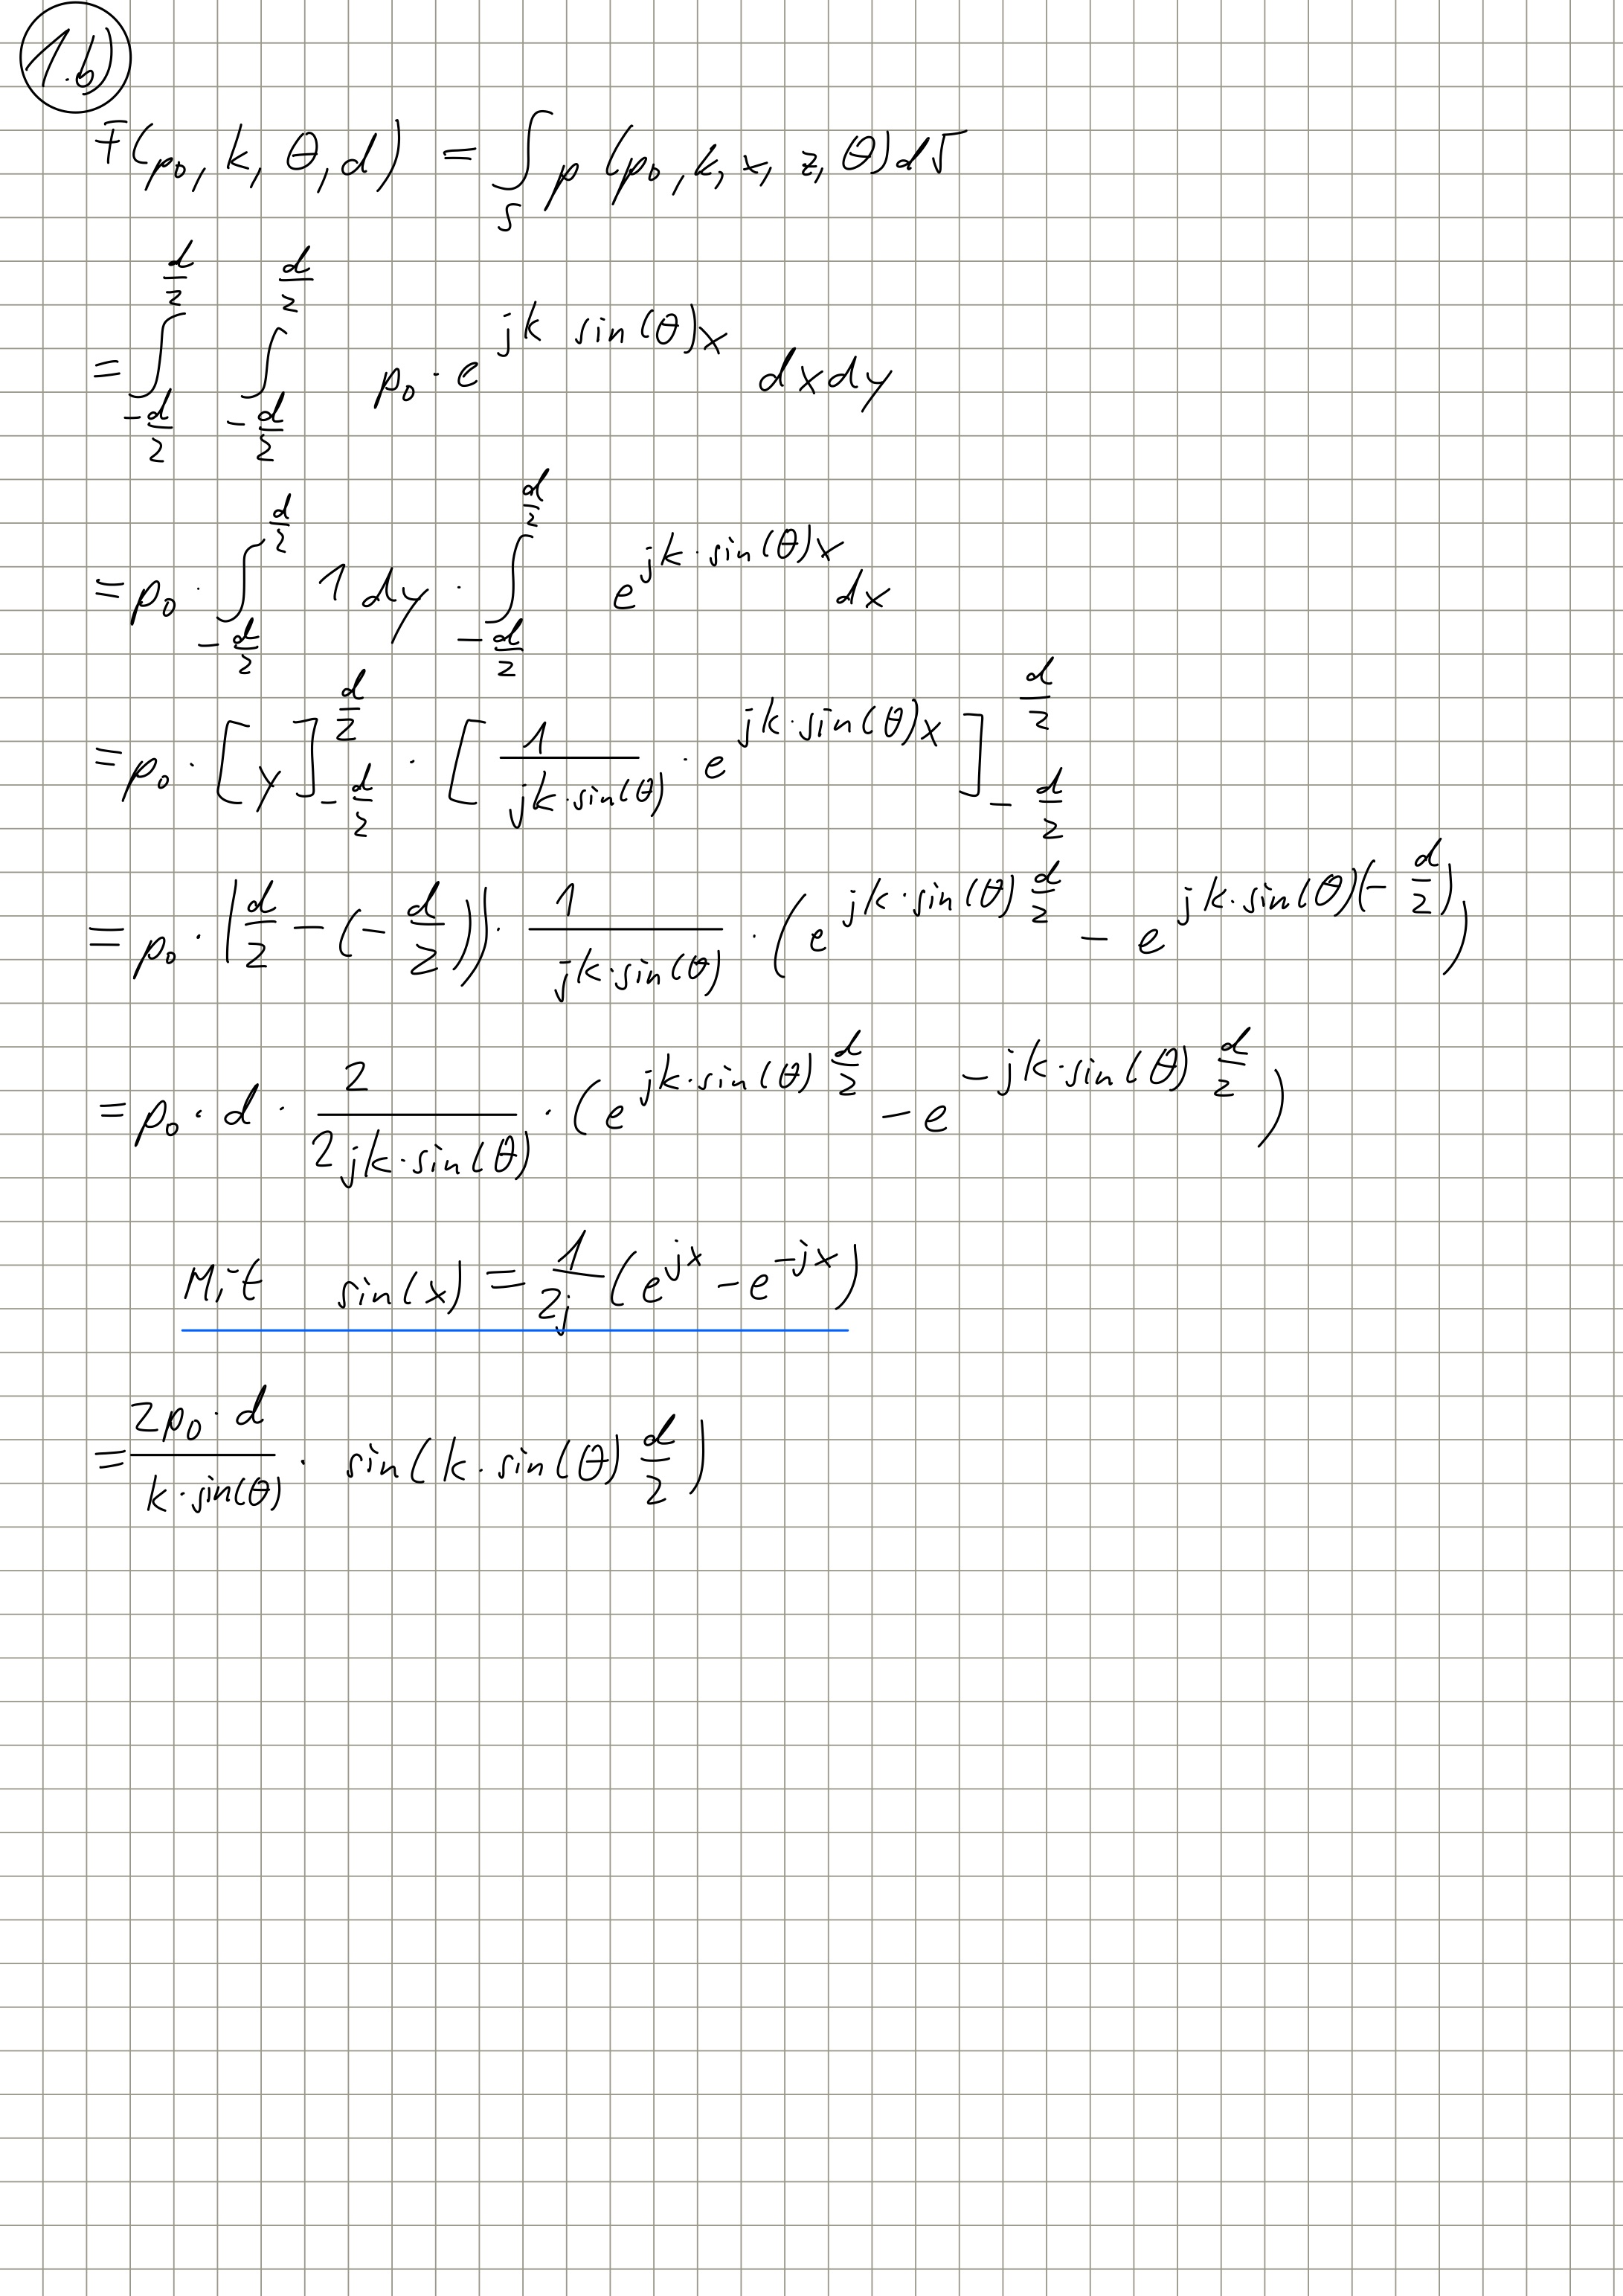 1.b)
F(p₀, k, θ, d) = ∫_S p (p₀, k, x, z, θ) dS
= ∫_{-d/2}^{d/2} ∫_{-d/2}^{d/2} p₀ · e^{jk sin(θ)x} dxdy
= p₀ · ∫_{-d/2}^{d/2} 1 dy · ∫_{-d/2}^{d/2} e^{jk·sin(θ)x} dx
= p₀ · [y]_{-d/2}^{d/2} · [1/(jk·sin(θ)) · e^{jk·sin(θ)x}]_{-d/2}^{d/2}
= p₀ · (d/2 - (-d/2)) · 1/(jk·sin(θ)) · (e^{jk·sin(θ) d/2} - e^{jk·sin(θ)(-d/2)})
= p₀ · d · 2/(2jk·sin(θ)) · (e^{jk·sin(θ) d/2} - e^{-jk·sin(θ) d/2})
Mit sin(x) = 1/(2j) (e^{jx} - e^{-jx})
= (2p₀·d)/(k·sin(θ)) · sin(k·sin(θ) d/2)